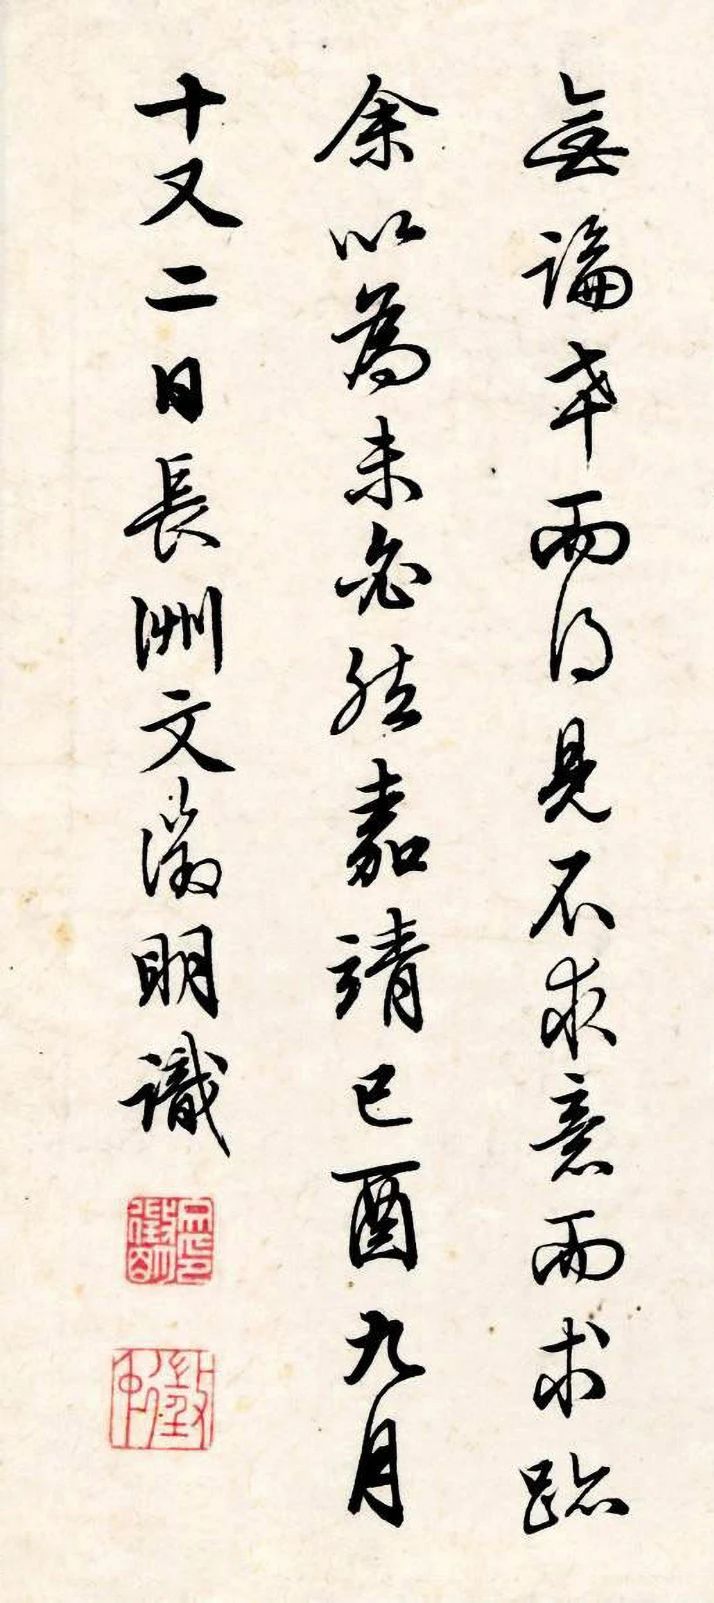 無論而得見不求意而求跡
余以為未必然嘉靖己酉九月
十又二日長洲文徵明識
徵仲